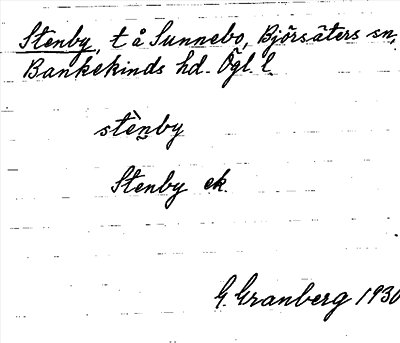 Stenby, t å Sunnebo, Björsäters sn,
Bankekinds hd. Ögl. l.
stèn̰by
Stenby ek.
G. Granberg 1930